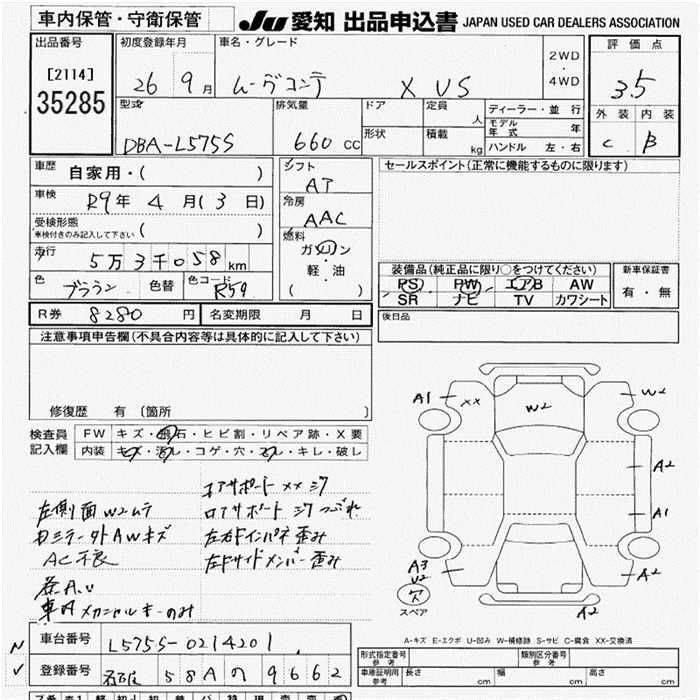 車内保管・守衛保管 JU 愛知 出品申込書 JAPAN USED CAR DEALERS ASSOCIATION
出品番号 初度登録年月 車名・グレード 2WD ・ 4WD 評価点
[2114] 26 9月 ムーヴコンテ X VS 3.5
35285
型式 排気量 ドア 定員 人 ディーラー・並行 外装 内装
DBA-L575S 660 cc 形状 積載 kg モデル年式 年 C B
ハンドル 左・右
車歴 自家用・( ) シフト AT セールスポイント(正常に機能するものに限ります)
車検 R9年 4月(3日) 冷房 AAC
受検形態 ※車検付きのみ記入して下さい ( )
燃料 ガソリン・軽・油 ( )
走行 5万3千058km
装備品(純正品に限り○をつけてください) 新車保証書
色 ブラウン 色替 色コード R59
PS PW エアB AW 有・無
SR ナビ TV カワシート
R券 8280円 名変期限 月 日 後日品
注意事項申告欄(不具合内容等は具体的に記入して下さい)
修復歴 有 〔箇所 〕
検査員記入欄 FW キズ・飛石・ヒビ割・リペア跡・X要
内装 キズ・汚レ・コゲ・穴・スレ・キレ・破レ
コアサポート XX ジワ
左側面W2ムラ ロアサポート ジワ つぶれ
ミラー外AWキズ 左右Fインパネ歪み
AC不良 左Fサイドメンバー歪み
A、U
車内メカニカルキーのみ
A1 XX W2 W2
A2
A1
A3 U2 A2
欠 スペア A2
A-キズ E-エクボ U-凹み W-補修跡 S-サビ C-腐食 XX-交換済
車台番号 L575S-0214201
登録番号 名古屋 58A の 9662
形式指定番号 参考 類別区分番号 参考
車庫証明用 参考 長さ cm 幅 cm 高さ cm